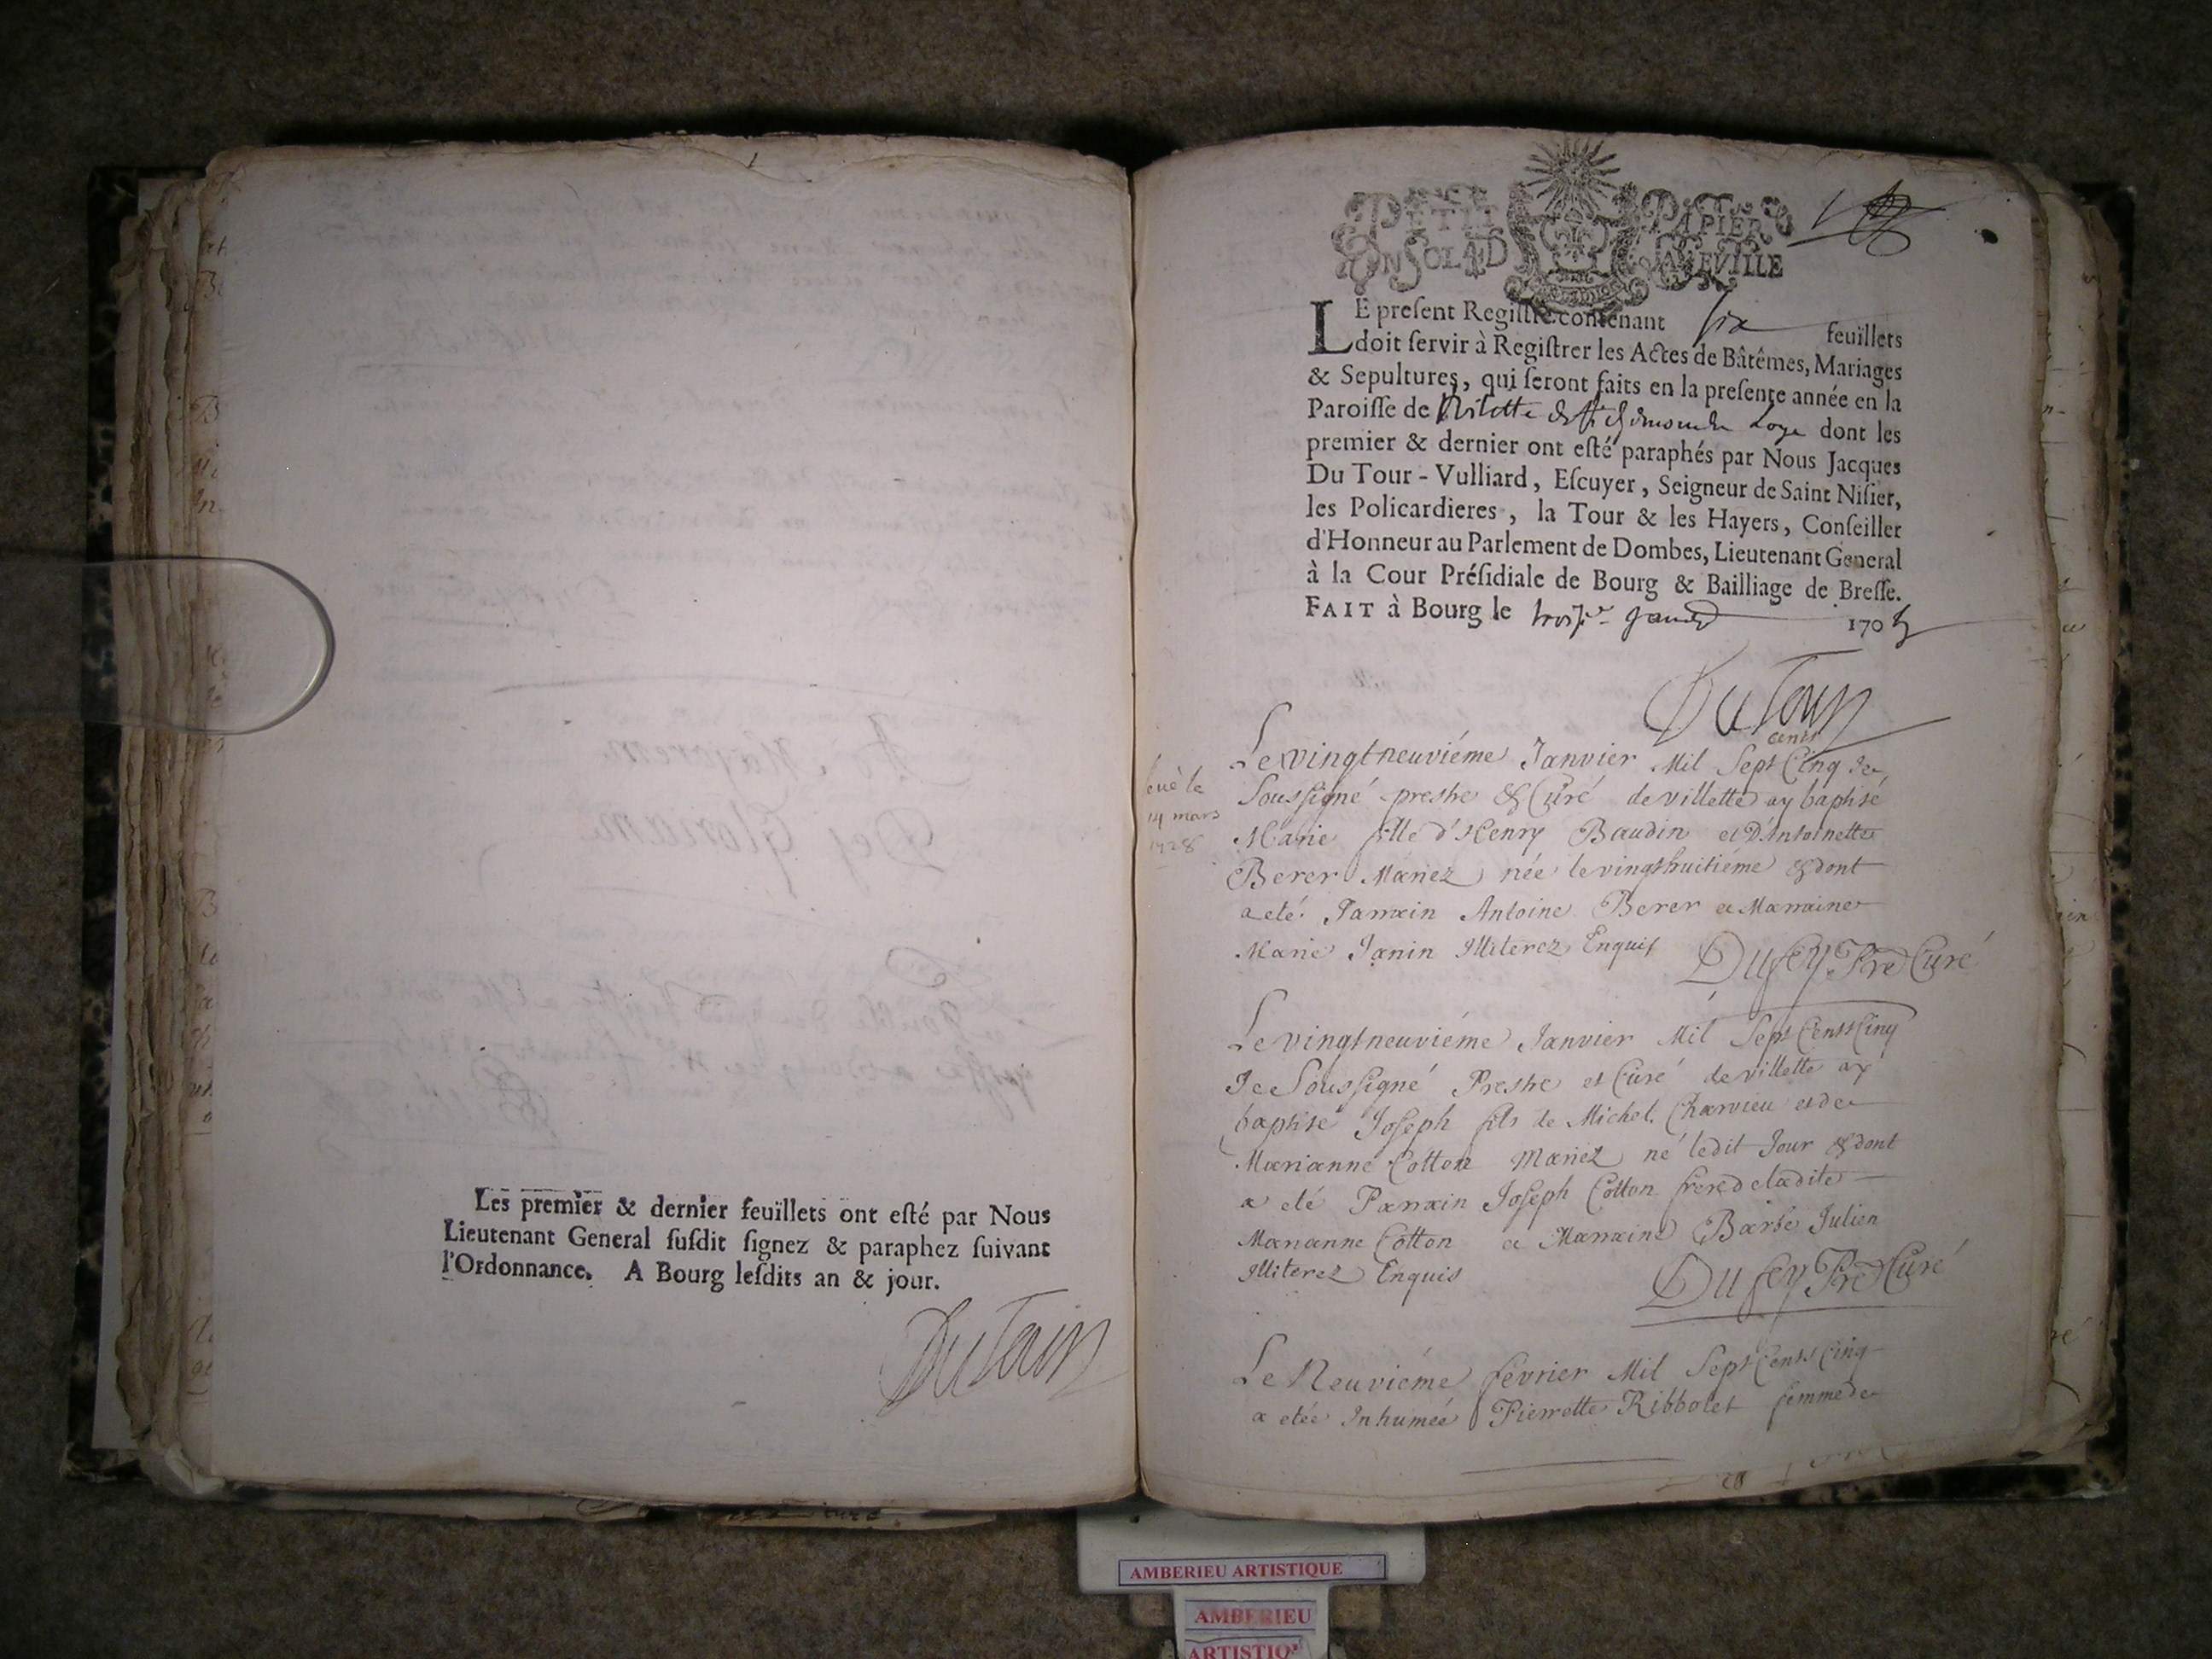 Les premier & dernier feuïllets ont esté par Nous
Lieutenant General susdit signez & paraphez suivant
l'Ordonnance. A Bourg lesdits an & jour.
DuTour
PETIT PAPIER
UN SOL 4 D LA FEVILLE
LE present Registre contenant six feuïllets
doit servir à Registrer les Actes de Bâtêmes, Mariages
& Sepultures, qui seront faits en la presente année en la
Paroisse de Loye dont les
premier & dernier ont esté paraphés par Nous Jacques
Du Tour - Vulliard, Escuyer, Seigneur de Saint Nisier,
les Policardieres, la Tour & les Hayers, Conseiller
d'Honneur au Parlement de Dombes, Lieutenant General
à la Cour Présidiale de Bourg & Bailliage de Bresse.
FAIT à Bourg le 1705
DuTour
cents
Le vingtneuviéme Janvier Mil Sept Cinq Je
Soussigné prestre & Curé de villette ay baptisé
Marie fille d'Henry Baudin et D'Antoinette
Berer Mariez née le vingthuitiéme & dont
a eté Parrain Antoine Berer et Marraine
Marie Janin Illiterez Enquis Dufey Pre Curé
14 mars
1728
Le vingtneuviéme Janvier Mil Sept Cents Cinq
Je Soussigné Prestre et Curé de villette ay
baptisé Joseph fils de Michel Charvieu et de
Marianne Cotton Mariez né ledit Jour & dont
a eté Parrain Joseph Cotton frere de ladite
Marianne Cotton et Marraine Barbe Julien
Illiterez Enquis Dufey Pre Curé
Le Neuviéme février Mil Sept Cents Cinq
a etée Inhumée Pierrette Ribbolet femme de
AMBERIEU ARTISTIQUE
AMBERIEU
ARTISTIQ